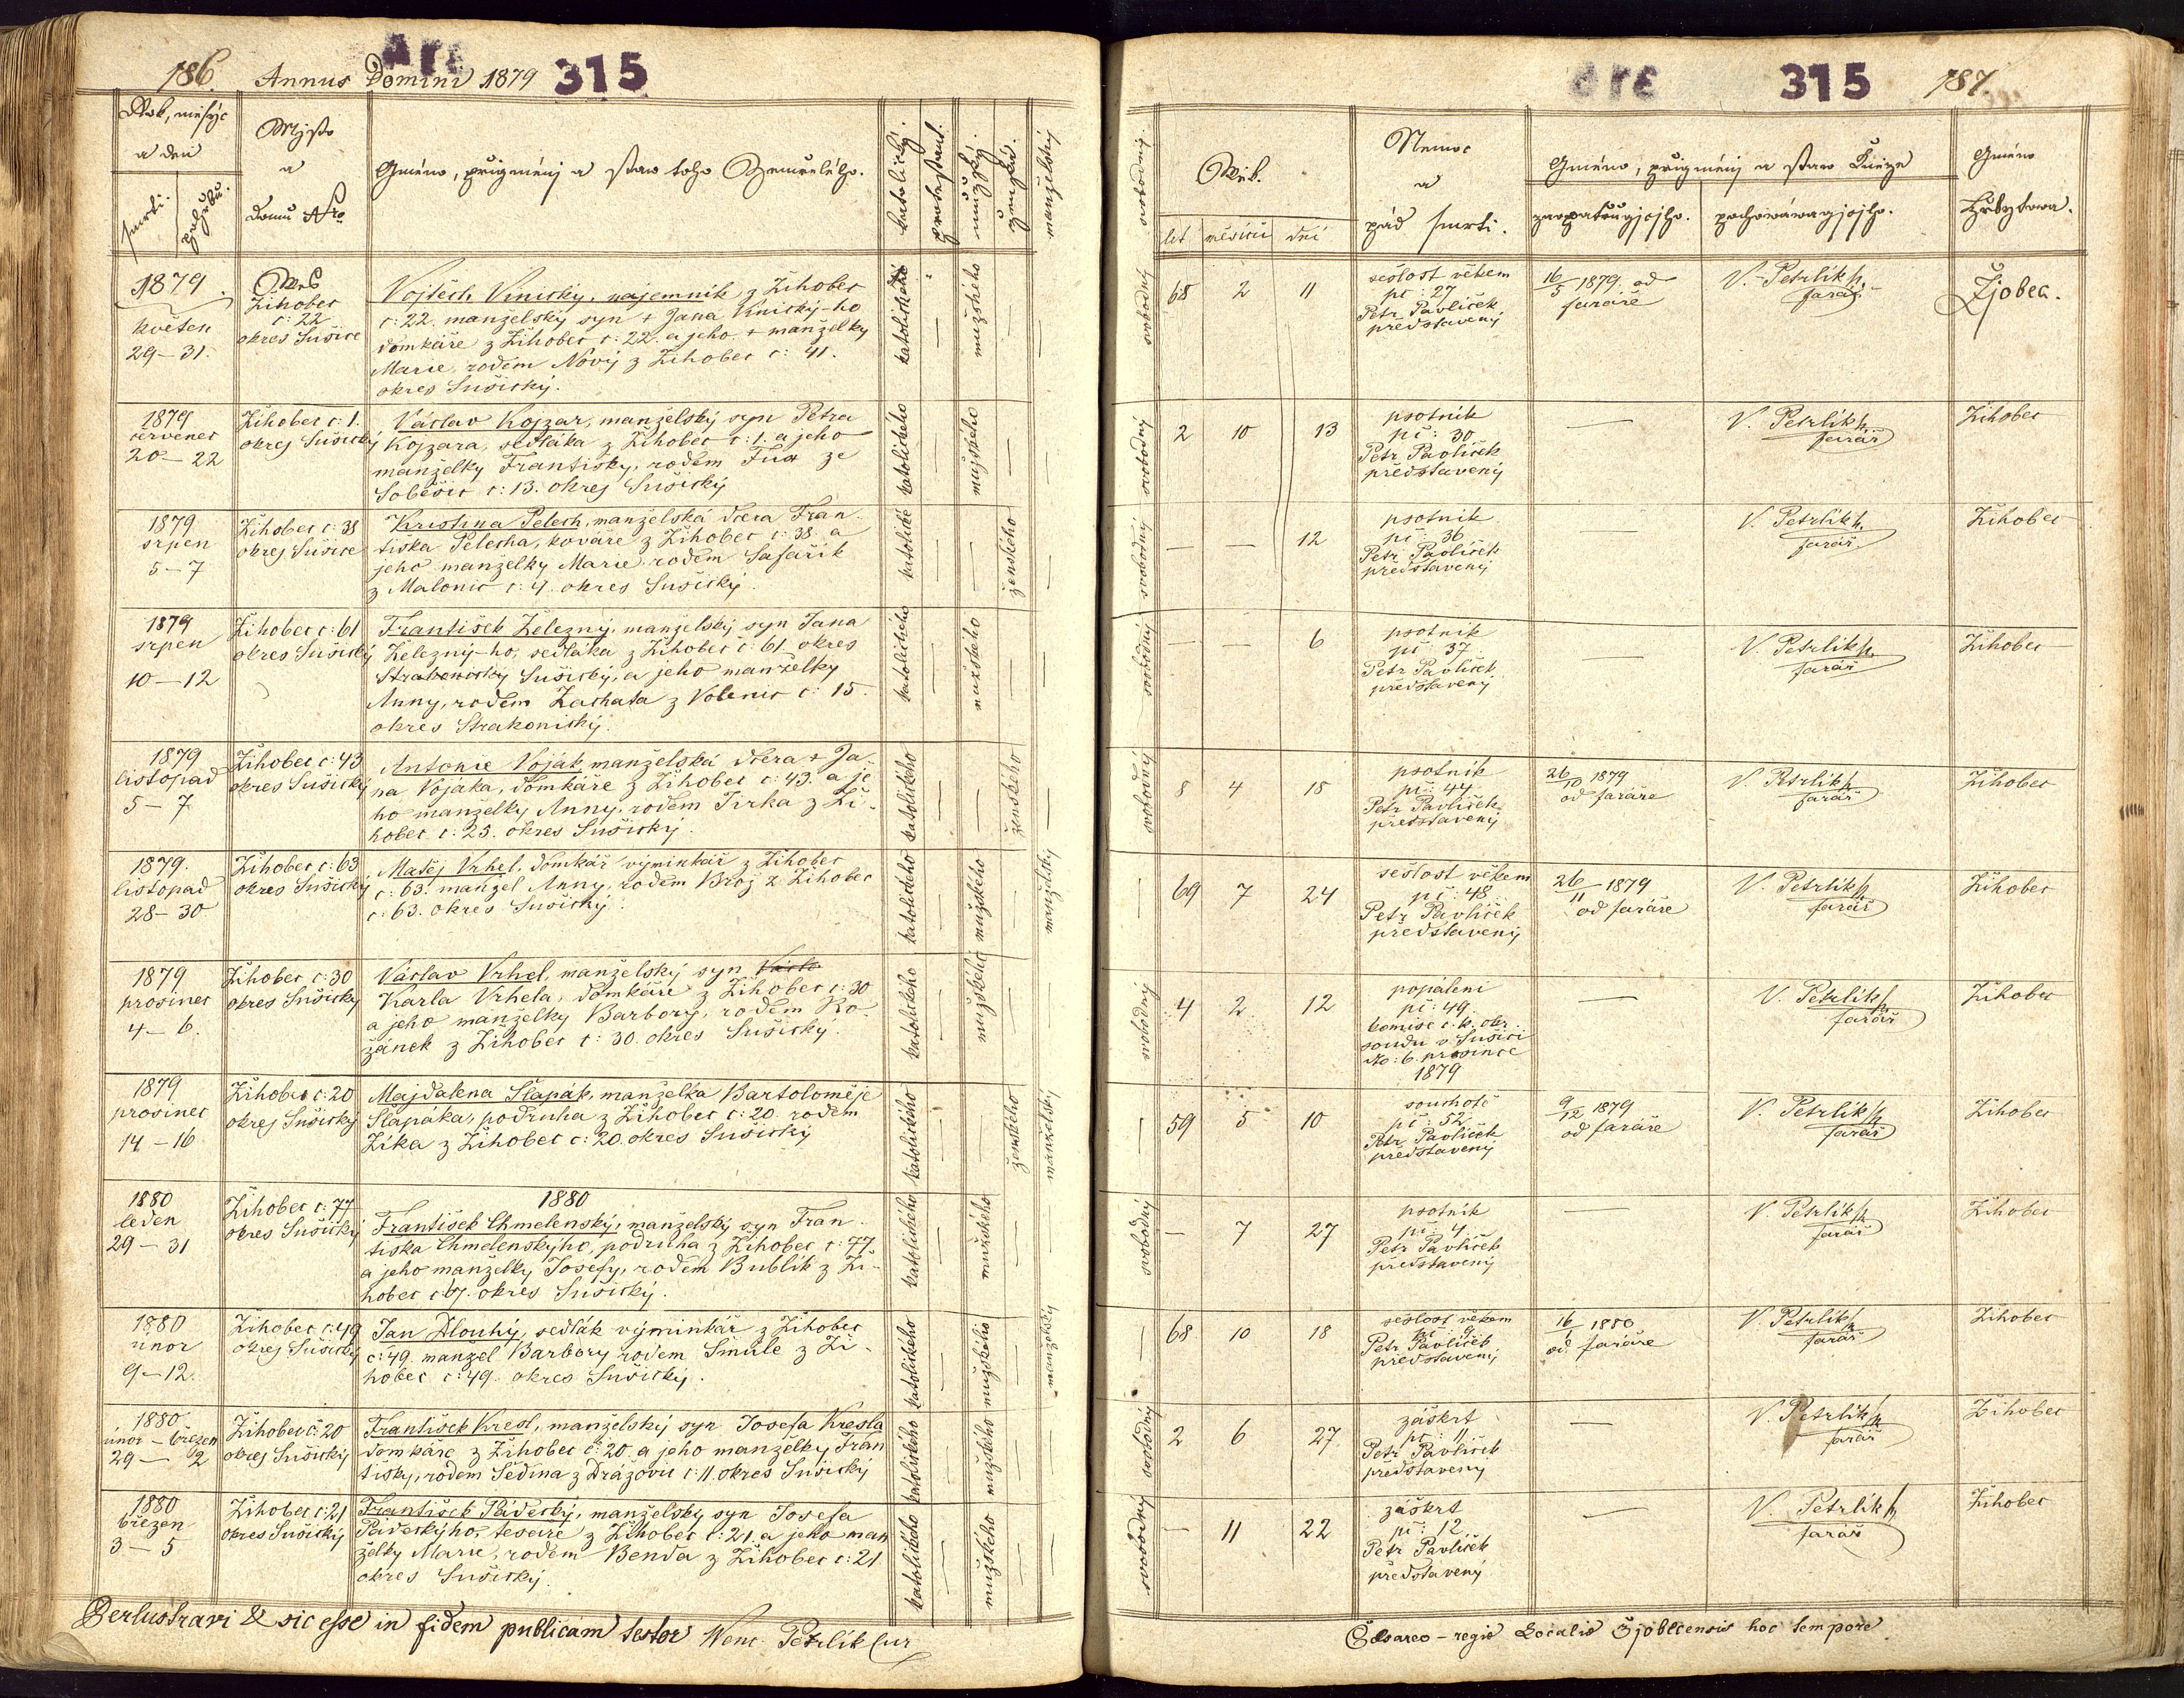 186. Annus Domini 1879 315
Rok, měsýc
a den
smrti.
pohřbu.
Mjsto
a
domu Nro
Gméno, přigménj a staw toho Zemřelého.
katolický.
protestant.
mužský.
ženský.
manželský
1879.
květen
29–31.
Wes
Žihobec
č: 22
okres Sušice
Vojtěch Vinický, nájemník, z Žihobec
č: 22. manželský syn + Jana Vinický-ho
domkáře z Žihobec č: 22. a jeho + manželky
Marie, rodem Nový z Žihobec č: 41.
okres Sušický.
katolického
mužského
1879
červenec
20–22
Žihobec č: 1.
okres Sušický
Václav Kojzar, manželský syn Petra
Kojzara, sedláka z Žihobec č: 1. a jeho
manželky Františky, rodem Fux ze
Soběšic č: 13. okres Sušický
katolického
mužského
1879
srpen
5–7
Žihobec č: 38
okres Sušice
Kristina Pelech, manželská dcera Fran-
tiška Pelecha, kováře z Žihobec č: 38. a
jeho manželky Marie rodem Šafařík
z Malonic č: 4. okres Sušický.
katolické
ženského
1879
srpen
10–12
Žihobec č: 61
okres Sušický
František Železný, manželský syn Jana
Železný-ho, sedláka z Žihobec č: 61 okres
Strakonický Sušický, a jeho manželky
Anny, rodem Zachata z Volenic č: 15.
okres Strakonický.
katolického
mužského
1879
listopad
5–7
Žihobec č: 43
okres Sušický
Antonie Voják, manželská dcera + Ja-
na Vojáka, domkáře z Žihobec č: 43. a je-
ho manželky Anny, rodem Jirka z Ži-
hobec č: 23. okres Sušický.
katolického
ženského
1879.
listopad
28–30
Žihobec č: 63
okres Sušický
Matěj Vrhel, domkář výminkář z Žihobec
č: 63. manžel Anny, rodem Brož z Žihobec
č: 63. okres Sušický.
katolického
mužského
manželský
1879
prosinec
4–6.
Žihobec č: 30
okres Sušický
Václav Vrhel, manželský syn Václa
Karla Vrhela, domkáře z Žihobec č: 30
a jeho manželky Barbory, rodem Ro-
žánek z Žihobec č: 30. okres Sušický.
katolického
mužského
1879
prosinec
14–16
Žihobec č: 20
okres Sušický
Majdalena Šlapák, manželka Bartoloměje
Šlapáka, podruha z Žihobec č: 20. rodem
Zíka z Žihobec č: 20. okres Sušický
katolického
ženského
manželský
1880
1880
leden
29–31
Žihobec č: 77
okres Sušický
František Chmelenský, manželský syn Fran-
tiška Chmelenskýho, podruha z Žihobec č: 77
a jeho manželky Josefy, rodem Bublík z Ži-
hobec č: 67. okres Sušický.
katolického
mužského
1880
únor
9–12.
Žihobec č: 49
okres Sušický
Jan Dlouhý, sedlák výminkář z Žihobec
č: 49. manžel Barbory rodem Šmule z Ži-
hobec č: 49. okres Sušický.
katolického
mužského
manželský
1880
únor – březen
29 – 2
Žihobec č: 20
okres Sušický
František Kresl, manželský syn Josefa Kresla
domkáře z Žihobec č: 20 a jeho manželky Fran-
tišky, rodem Šedina z Drážovic č: 11 okres Sušický
katolického
mužského
1880
březen
3–5
Žihobec č: 21
okres Sušický
František Pádecký, manželský syn Josefa
Pádeckýho, tesaře z Žihobec č: 21. a jeho man-
želky Marie, rodem Benda z Žihobec č: 21
okres Sušický.
katolického
mužského
Perlustravi & sic esse in fidem publicam testor Wenc. Petrlík Cur
315 187.
svobodný.
Wěk.
let měsíců dní
Nemoc
a
pád smrti.
Gméno, přigménj a staw Kněze
zaopatřugjcjho. pochowáwagjcjho.
Gméno
Hřbytowa.
svobodný
68 2 11
sešlost věkem
pč: 27
Petr Pavlíček
představený
16/5 1879 od
faráře
V. Petrlík
farář
Žjobec.
svobodný
2 10 13
psotník
pč: 30
Petr Pavlíček
představený
V. Petrlík
farář
Žihobec
svobodný
12
psotník
pč: 36
Petr Pavlíček
představený
V. Petrlík
farář
Žihobec
svobodný
6
psotník
pč: 37
Petr Pavlíček
představený
V. Petrlík
farář
Žihobec
svobodný
8 4 15
psotník
pč: 44
Petr Pavlíček
představený
26/10 1879
od faráře
V. Petrlík
farář
Žihobec
69 7 24
sešlost věkem
pč: 48
Petr Pavlíček
představený
26/11 1879
od faráře
V. Petrlík
farář
Žihobec
svobodný
4 2 12
popálení
pč: 49.
komise c. k. okr.
soudu v Sušici
dto: 6. prosince
1879
V. Petrlík
farář
Žihobec
59 5 10
souchotě
pč: 52
Petr Pavlíček
představený
9/12 1879
od faráře
V. Petrlík
farář
Žihobec
svobodný
7 27
psotník
pč: 4
Petr Pavlíček
představený
V. Petrlík
farář
Žihobec
68 10 18
sešlost věkem
pč: 9
Petr Pavlíček
představený
16/1 1880
od faráře
V. Petrlík
farář
Žihobec
svobodný
2 6 27
záškrt
pč: 11
Petr Pavlíček
představený
V. Petrlík
farář
Žihobec
svobodný
11 22
záškrt
pč: 12
Petr Pavlíček
představený
V. Petrlík
farář
Žihobec
Cesareo-regie Localis Žjoblcensis hoc tempore